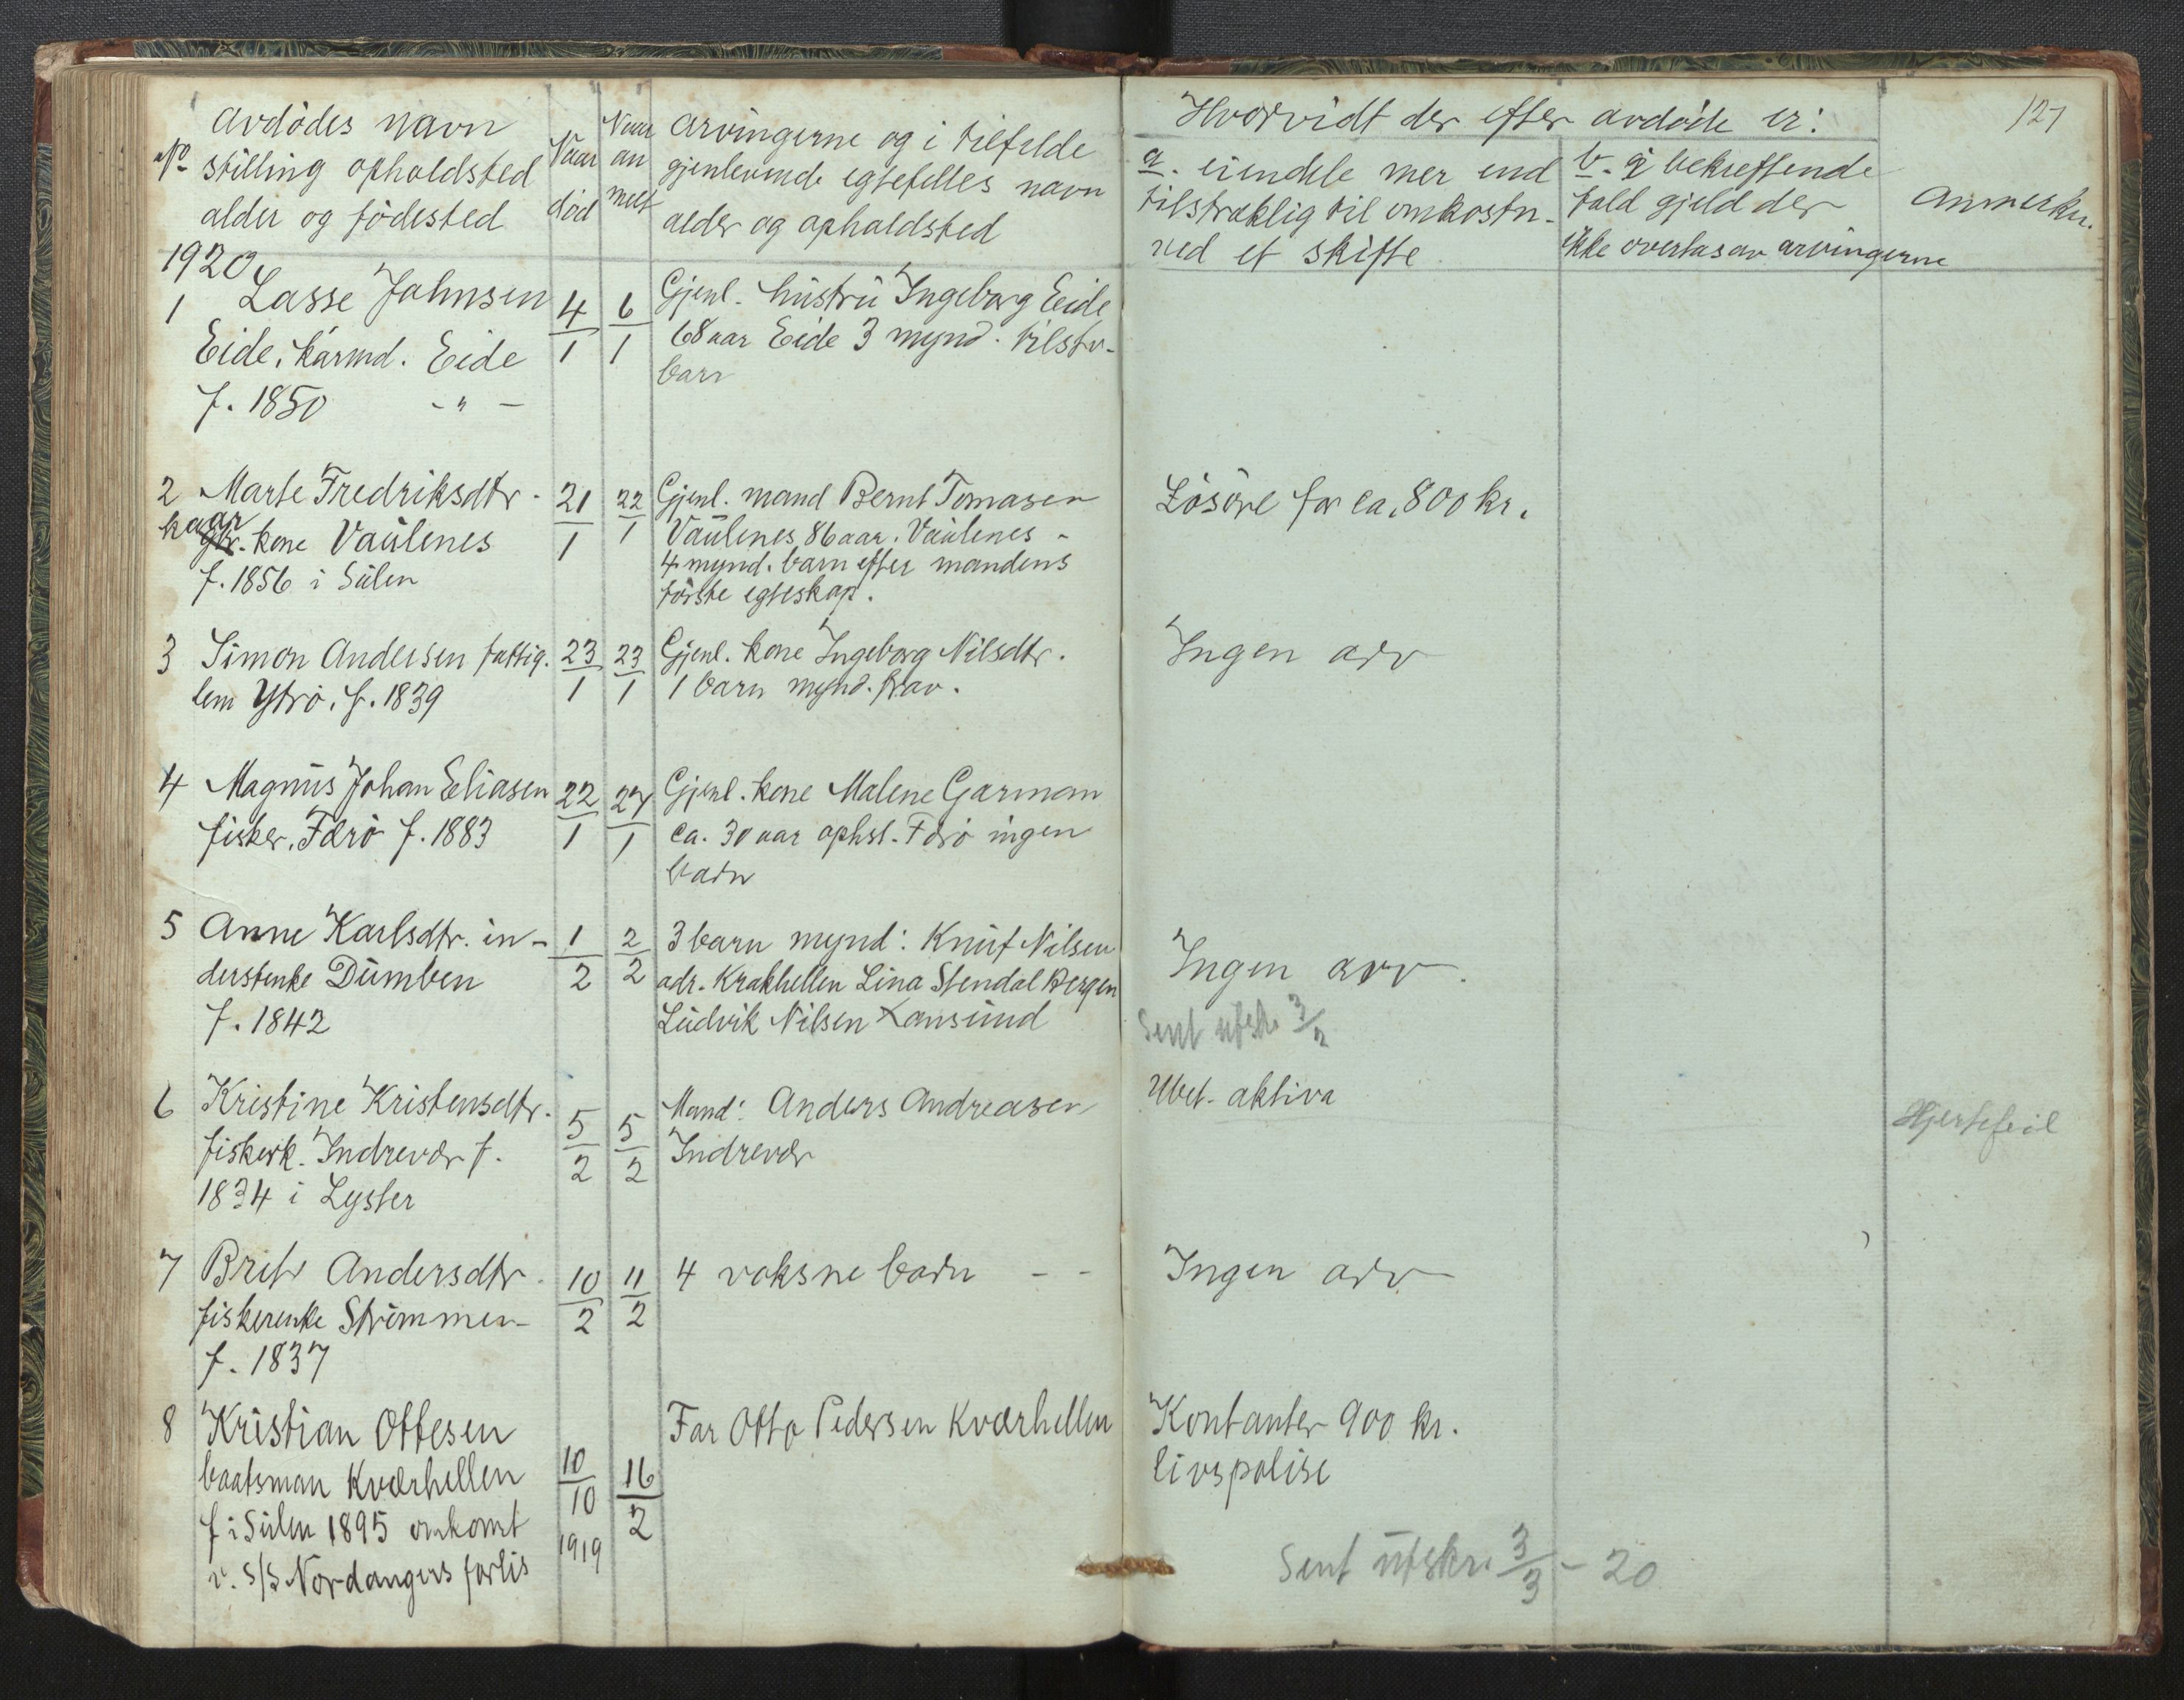 Avdödes navn
No stilling opholdsted
alder og födested
Naar
död
Naar
an
melt
Arvingerne og i tilfelde
gjenlevende egtefelles navn
alder og opholdsted
Hvorvidt der efter avdöde er:
a. eiendele mer end
tilstræklig til omkostn.
ved et skifte
b. i bekreftende
fald gjeld der
ikke overtas av arvingerne
Anmerkn.
127
1920
1 Lasse Johnsen
Eide, kårmd. Eide
f. 1850 - " -
4/1
6/1
Gjenl. hustru Ingeborg Eide
68 aar Eide 3 mynd. tilstr.
barn
2 Marte Fredriksdtr.
kaar
gbr. kone Vaulenes
f. 1856 i Sulen
21/1
22/1
Gjenl. mand Bernt Tomasen
Vaulenes 86 aar. Vaulenes -
4 mynd. barn efter mandens
förste egteskap.
Lösöre for ca. 800 kr.
3 Simon Andersen fattig.
lem Ytrö. f. 1839
23/1
23/1
Gjenl. kone Ingeborg Nilsdtr.
1 barn mynd. frav.
Ingen arv
4 Magnus Johan Eliasen
fisker, Færö f. 1883
22/1
27/1
Gjenl. kone Malene Garman
ca. 30 aar ophst. Færö ingen
barn
5 Anne Karlsdtr. in-
derstenke Dumben
f. 1842
1/2
2/2
3 barn mynd: Knut Nilsen
adr. Krakhellen Lina Stendal Bergen
Ludvik Nilsen Kansund
Ingen arv
Sent utskr 3/2
6 Kristine Kristensdtr.
fiskerk. Indrevær f.
1834 i Lyster
5/2
5/2
Mand: Anders Andreasen
Indrevær
Ubet. aktiva
Hjertefeil
7 Brite Andersdtr.
fiskerenke Strömmen
f. 1837
10/2
11/2
4 voksne barn - -
Ingen arv
8 Kristian Ottesen
baatsman Kværhellen
f i Sulen 1895 omkomt
v. S/S Nordangers forlis
10/10
1919
16/2
Far Otto Pedersen Kværhellen
Kontanter 900 kr.
livspolise
Sent utskr. 3/3 - 20